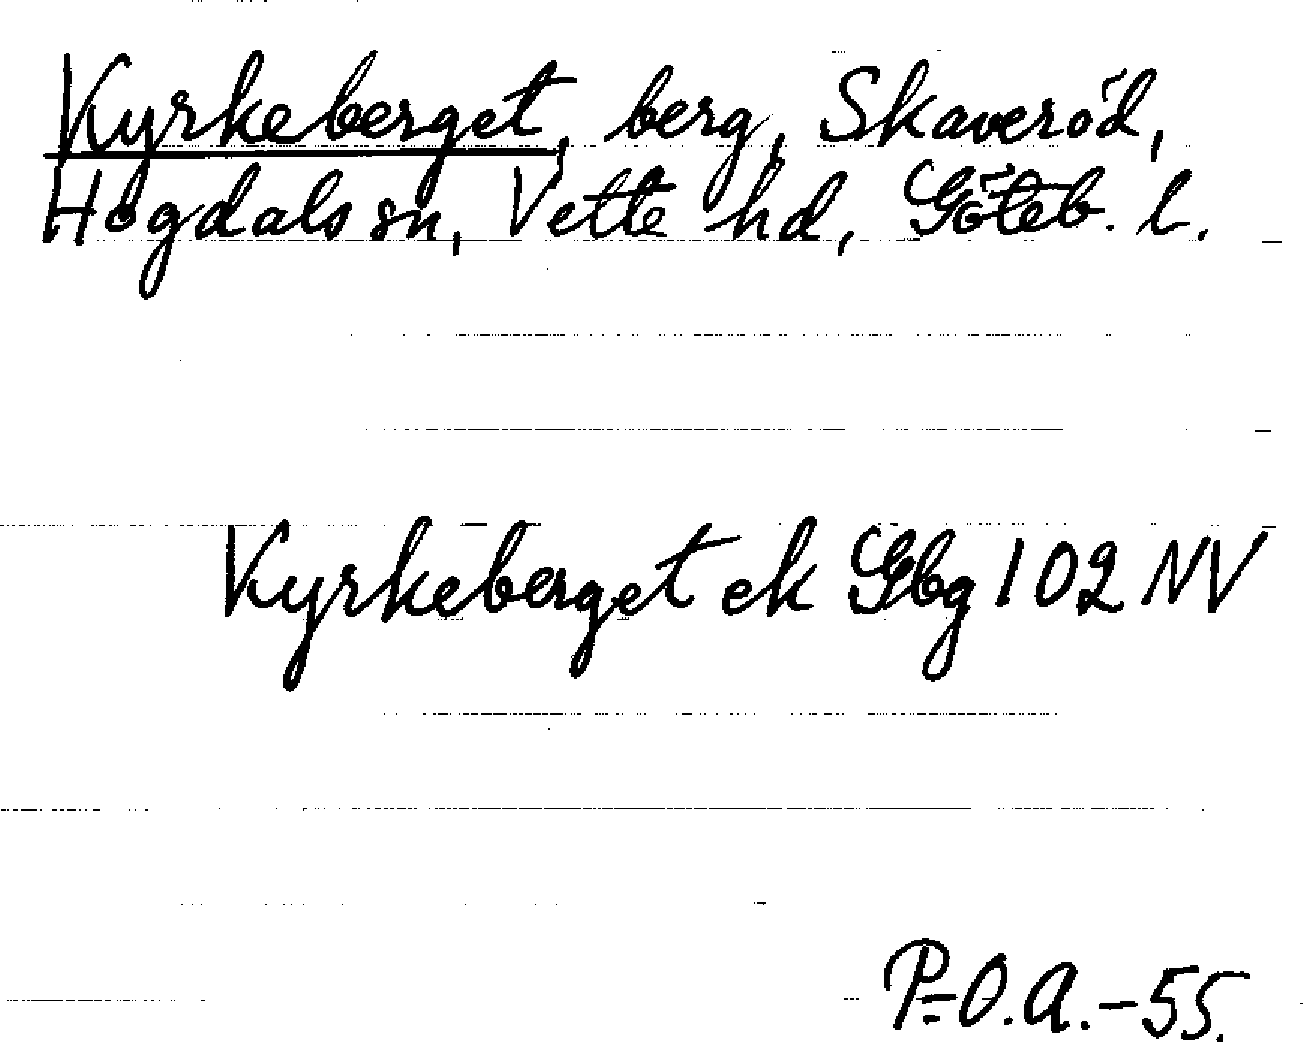 Kyrkeberget, berg, Skaveröd,
Hogdals sn, Vette hd, Göteb. l.
Kyrkeberget ek Gbg 102 NV
P-O.A.-55.